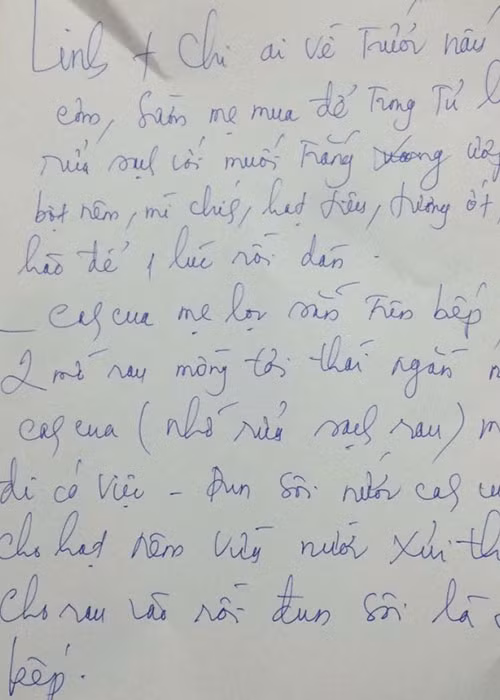 Linh + Chi ai về trước nấu
cơm, mẹ mua để trong tủ
rửa sạch với muối trắng ướp
bột nêm, mì chính, hạt tiêu, tương ớt,
hào để 1 lúc rồi rán.
– Canh cua mẹ lọc sẵn trên bếp
2 mớ rau mồng tơi thái ngắn
canh cua (nhớ rửa sạch rau) m
đi có việc – Đun sôi nước canh cu
cho hạt nêm vừa nước xủi th
cho rau vào rồi đun sôi là
bếp.